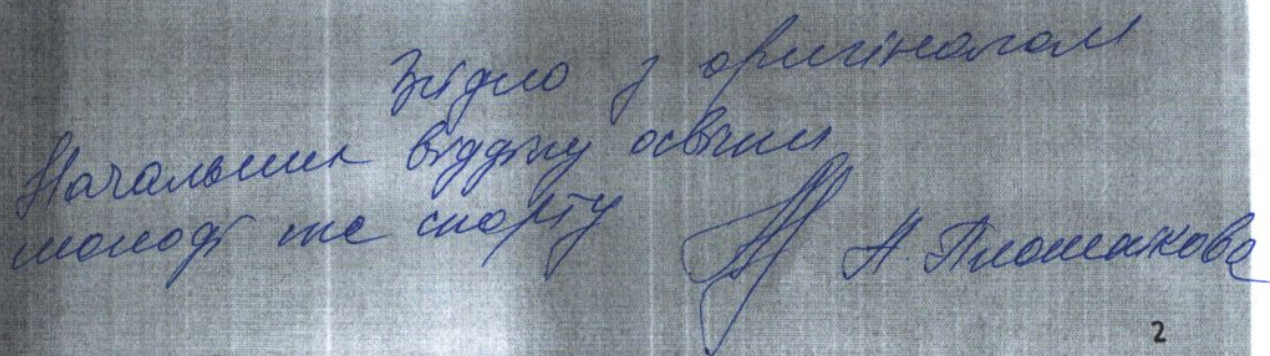 Згідно з оригіналом
Начальник відділу освіти
молоді та спорту
А. Плошакова
2